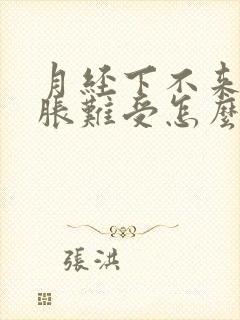 月经下不来
脹難受怎麼
張洪